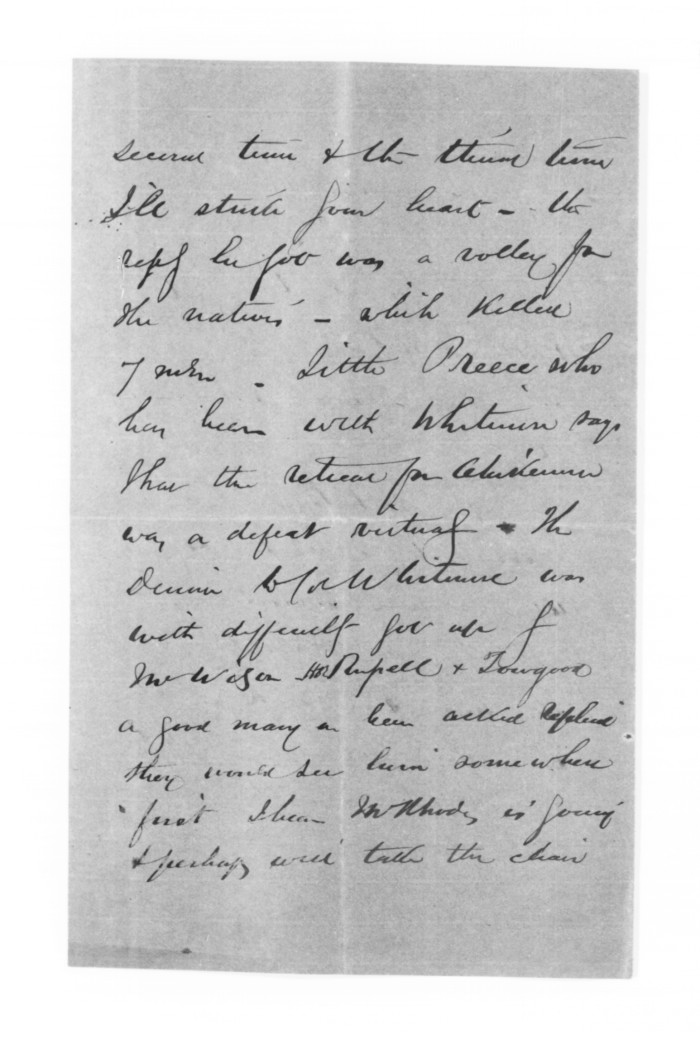 second time & the third time
I'll strike your heart - the
reply he got was a volley from
the natives - which killed
7 men - Little Preece who
has been with Whitmore says
that the retreat from
was a defeat virtually - The
Dinner to Col Whitmore was
with difficulty got up by
Mr Wilson Hon Russell & Towgood
a good many on been asked replied
they would see him somewhere
first I hear Mr Rhodes is going
& perhaps will take the chair